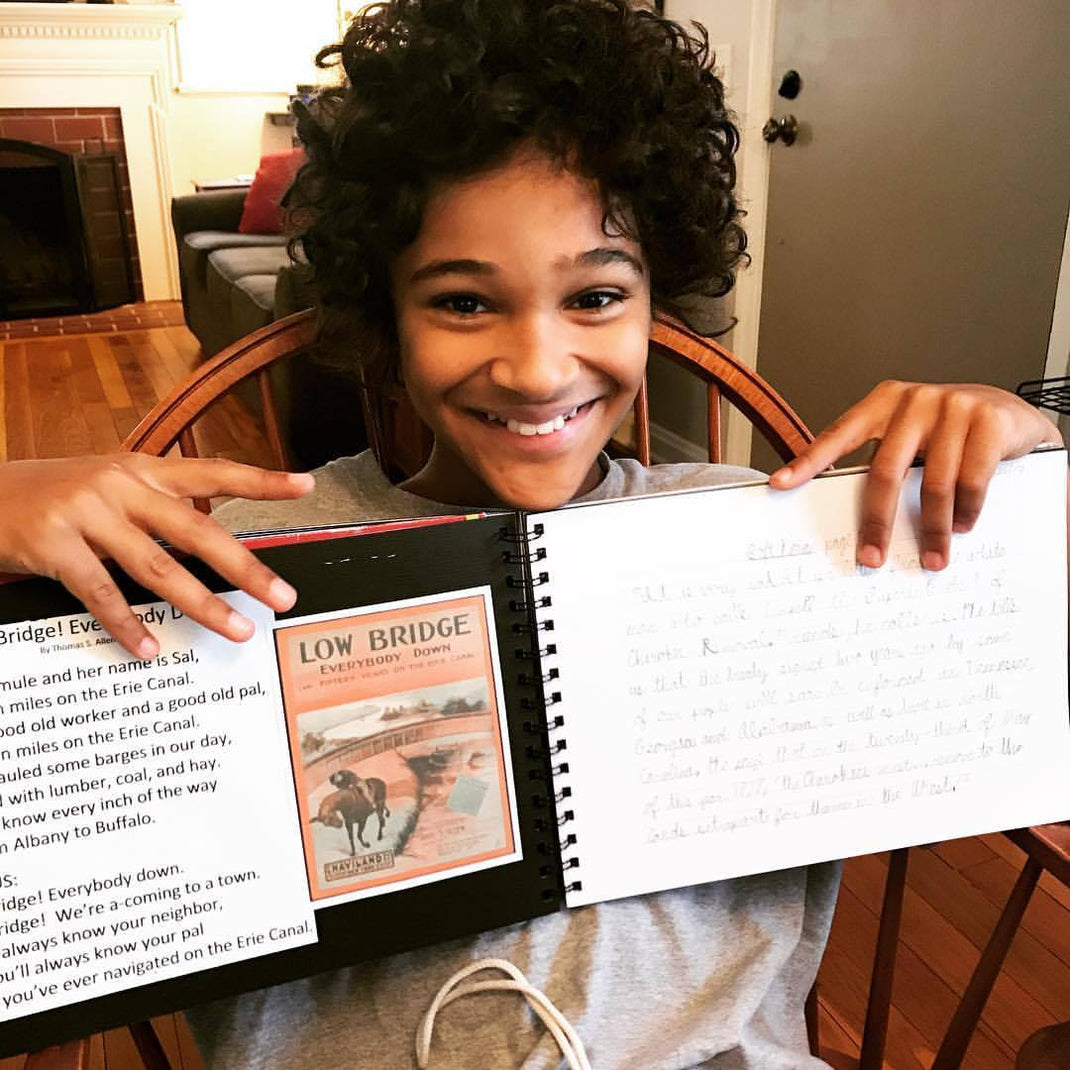 Bridge! Everybody D
By Thomas S. Allen
mule and her name is Sal,
n miles on the Erie Canal.
ood old worker and a good old pal,
n miles on the Erie Canal.
auled some barges in our day,
d with lumber, coal, and hay.
know every inch of the way
m Albany to Buffalo.
US:
idge! Everybody down.
ridge! We're a-coming to a town.
always know your neighbor,
ou'll always know your pal
you've ever navigated on the Erie Canal.
LOW BRIDGE
EVERYBODY DOWN
FIFTEEN YEARS ON THE ERIE CANAL
HAVILAND
page
It is very sad. It is white
man who calls himself the
Cherokee
us that the treaty signed two years ago by some
of our people will be enforced. In Tennessee
Georgia and Alabama as well as here in North
Carolina, He says that on the twenty-third of May
of this year the Cherokee must move to the
lands set apart for them in the West."